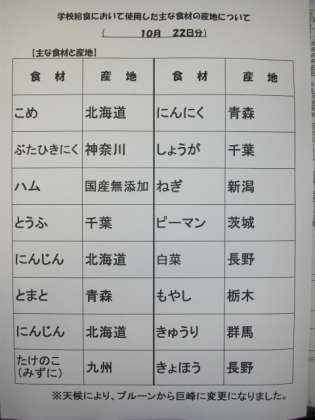 学校給食において使用した主な食材の産地について
( 10月 22日分)
【主な食材と産地】
食 材 産 地 食 材 産 地
こめ 北海道 にんにく 青森
ぶたひきにく 神奈川 しょうが 千葉
ハム 国産無添加 ねぎ 新潟
とうふ 千葉 ピーマン 茨城
にんじん 北海道 白菜 長野
とまと 青森 もやし 栃木
にんじん 北海道 きゅうり 群馬
たけのこ
(みずに) 九州 きょほう 長野
※天候により、プルーンから巨峰に変更になりました。